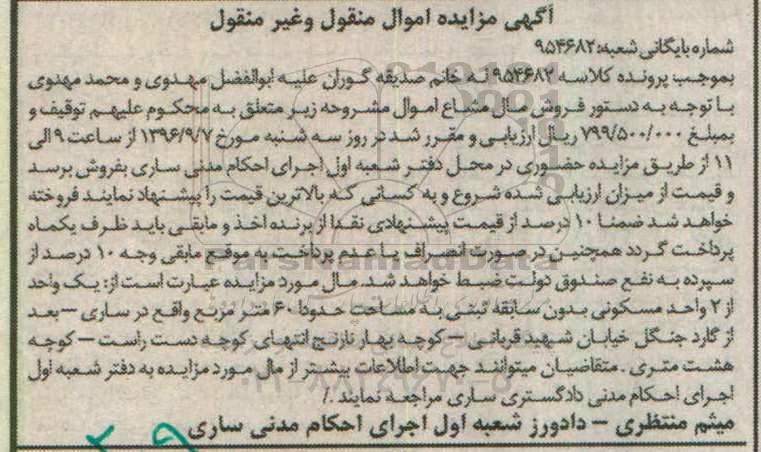 آگهی مزایده اموال منقول وغیر منقول
شماره بایگانی شعبه: ۹۵۴۶۸۲
بموجب پرونده کلاسه ۹۵۴۶۸۲ له خانم صدیقه گوران علیه ابوالفضل مهدوی و محمد مهدوی
با توجه به دستور فروش مال مشاع اموال مشروحه زیر متعلق به محکوم علیهم توقیف و
بمبلغ ۷۹۹/۵۰۰/۰۰۰ ریال ارزیابی و مقرر شد در روز سه شنبه مورخ ۱۳۹۶/۹/۷ از ساعت ۹ الی
۱۱ از طریق مزایده حضوری در محل دفتر شعبه اول اجرای احکام مدنی ساری بفروش برسد
و قیمت از میزان ارزیابی شده شروع و به کسانی که بالاترین قیمت را پیشنهاد نمایند فروخته
خواهد شد ضمنا ۱۰ درصد از قیمت پیشنهادی نقدا از برنده اخذ و مابقی باید ظرف یکماه
پرداخت گردد همچنین در صورت انصراف یا عدم پرداخت به موقع مابقی وجه ۱۰ درصد از
سپرده به نفع صندوق دولت ضبط خواهد شد. مال مورد مزایده عبارت است از: یک واحد
از ۲ واحد مسکونی بدون سابقه ثبتی به مساحت حدودا ۶۰ متر مربع واقع در ساری – بعد
از گارد جنگل خیابان شهید قربانی – کوچه بهار نارنج انتهای کوچه دست راست – کوچه
هشت متری . متقاضیان میتوانند جهت اطلاعات بیشتر از مال مورد مزایده به دفتر شعبه اول
اجرای احکام مدنی دادگستری ساری مراجعه نمایند ./
میثم منتظری – دادورز شعبه اول اجرای احکام مدنی ساری
ParsNamadData
۰۲۱-۸۸۳۴۹۶۷۰-۵